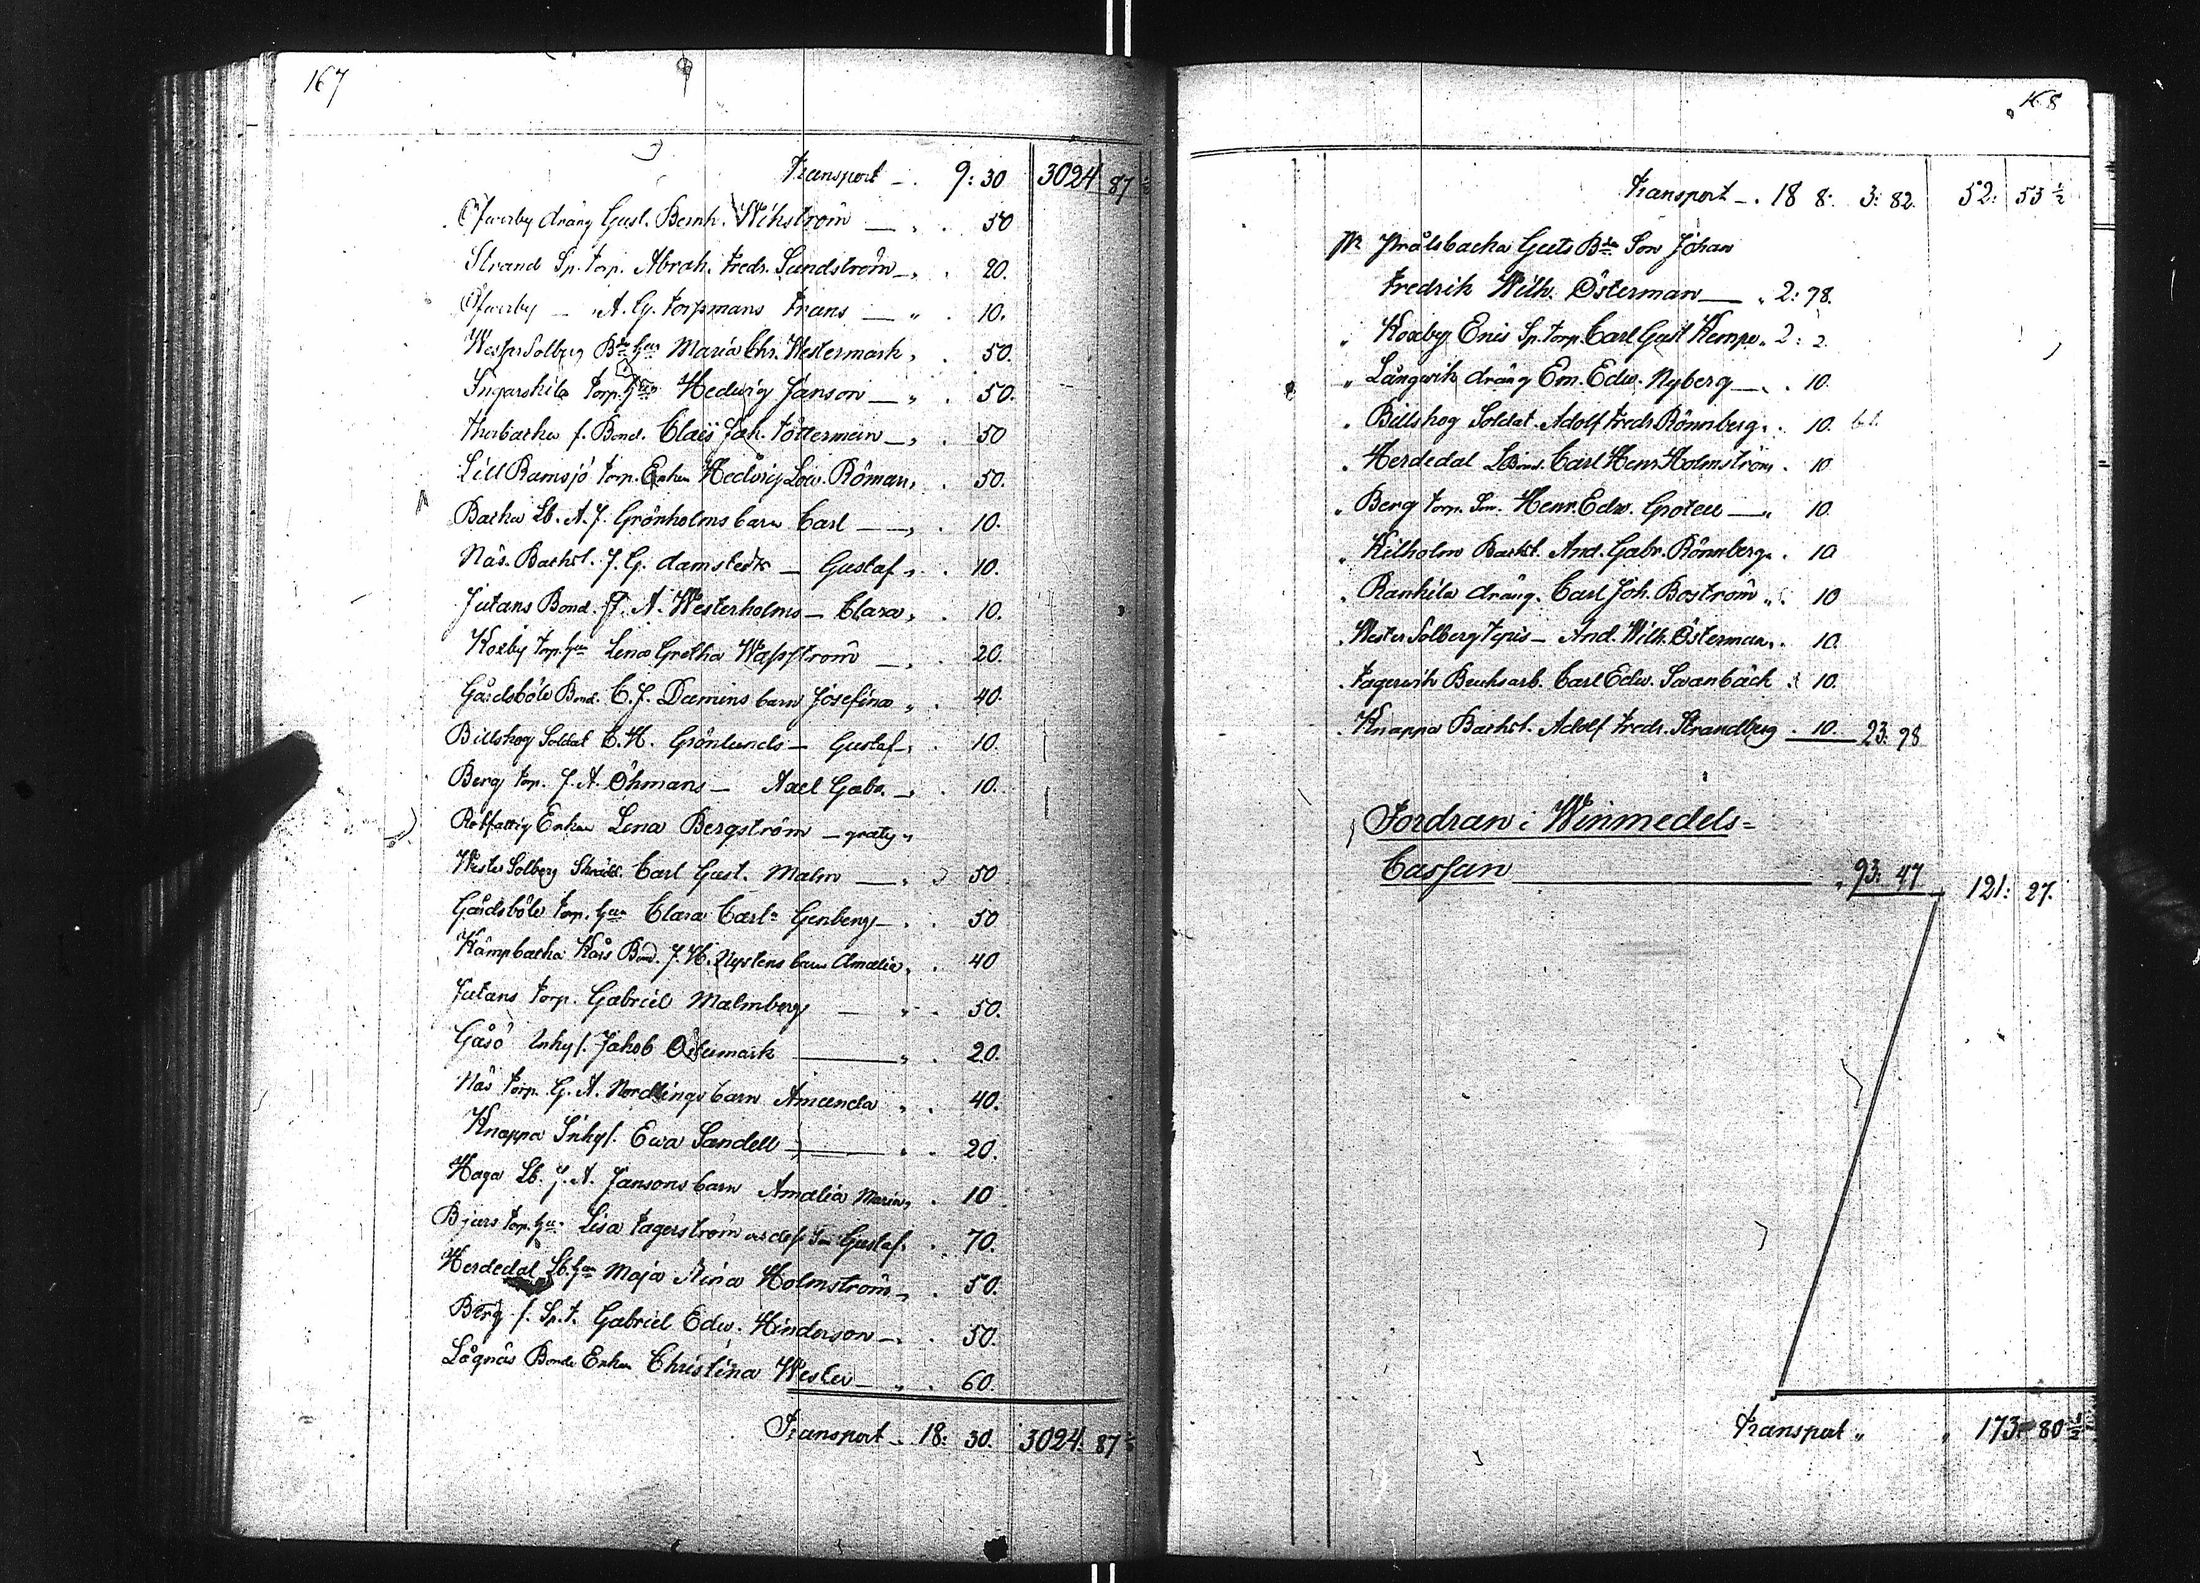 167
Transport - . 9: 30 3024 87 ½
Öfverby dräng Gust. Bernh. Wikström — „ . 50
Strand Sp. torp. Abrah. Fredr. Sundström - „ . 20.
Öfverby — A. G. Torpmans Frans — „ . 10.
Wester Solberg Bde hu Maria Chr. Westermark „ . 50.
Ingarskila Torp. hu Hedvig Janson — „ . 50.
f. Bond. Claës Joh. Tötterman — „ . 50
Lill Ramsjö torp. Enkan Hedvig Lov. Röman „ . 50.
Backa Lb. A. J. Grönholms barn Carl — „ . 10.
Näs. Backst. J. G. damstedts — Gustaf „ . 10.
Jutans Bond. F. A. Westerholms — Clara „ . 10.
Koxby Torp. hu Lena Gretha Wassström — „ . 20.
Gårdsböle Bond. C. J. Damins barn Josefina „ . 40.
Billskog Soldat C. H. Grönlunds — Gustaf „ . 10.
Berg torp. J. A. Öhmans — Axel Gabr. — „ . 10.
Rotfattig Enkan Lena Bergström — gratis „
Wester Solberg Skrädd. Carl Gust. Malm — „ . 50
Gårdsböle torp. hu Clara Carla Genberg — „ . 50
Kämpbacka Kårs Bond. J. H. Nystens barn Amalia „ . 40
Jutans torp. Gabriel Malmberg — „ . 50.
Gåsö Inhys. Jakob Östermark — „ . 20.
Näs torp. G. A. Nordlings barn Amanda „ . 40.
Knappa Inhys. Ewa Sandell — „ . 20.
Haga Lb. J. A. Jansons barn Amalia Maria „ . 10
Bjurs torp. hu Lisa Fagerström o dess Son Gustaf „ . 70.
Herdedal Lb. hu Maja Stina Holmström „ . 50.
Berg f. Sp. t. Gabriel Edw. Hinderson — „ . 50.
Lågnäs Bonde Enkan Christina Wester — „ . 60.
Transport - 18: 30. 3024: 87 ½
168
Transport - . 18 8: 3: 82. 52: 53 ½
Pr Prålsbacka Guts Bde Son Johan
Fredrik Wilh. Österman — „ 2: 78.
„ Koxby Enis Sp. torp. Carl Gust Kempe „ 2: 2.
„ Långwik dräng Em. Edw. Nyberg — „ . 10.
„ Billskog Soldat Adolf Fredr. Rönnberg „ . 10.
„ Herdedal LBond. Carl Henr. Holmström „ . 10
„ Berg torp. Son. Henr. Edw. Grotell — „ 10.
„ Kilholm Backst. And. Gabr. Rönnberg „ . 10
„ Rankila dräng. Carl Joh. Boström „ . 10
„ Wester Solberg — And. Wilh. Österman „ . 10.
„ Fagervik Bruksarb. Carl Edw. Svanbäck „ 10.
„ Knappa Backst. Adolf Fredr. Strandberg „ 10. 23: 98
Fordran i Winmedels=
Cassan — „ 93: 47 121: 27.
Transport „ „ 173 80 ½